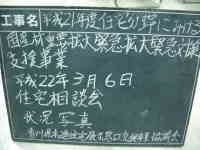 工事名 平成21年度住宅分野における
国産材需要拡大緊急拡大緊急対策
支援事業
平成22年3月6日
住宅相談会
状況写真